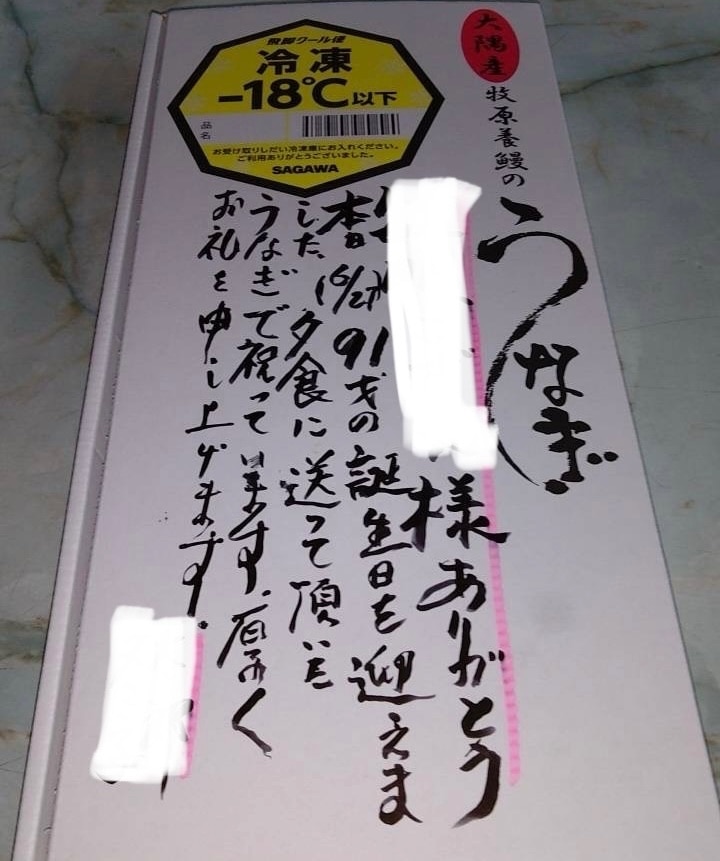 大隅産
牧原養鰻の
うなぎ
飛脚クール便
冷凍
-18℃以下
品名
お受け取りしだい冷凍庫にお入れください。
ご利用ありがとうございました。
SAGAWA
様ありがとう
本日 91才の誕生日を迎えま
した 夕食に送って頂いた
うなぎで祝って ます。厚く
お礼を申し上げます。